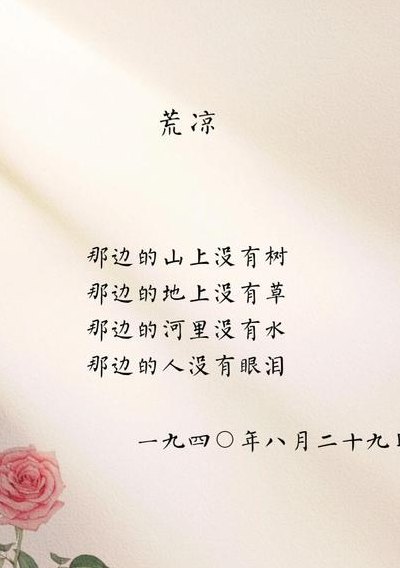 荒凉
那边的山上没有树
那边的地上没有草
那边的河里没有水
那边的人没有眼泪
一九四〇年八月二十九